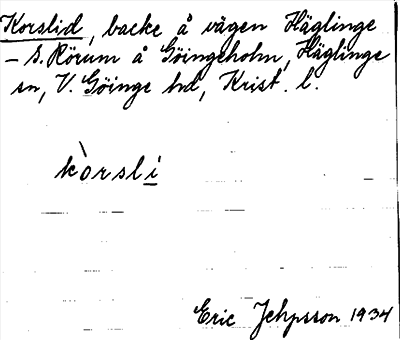 Korslid, backe å vägen Häglinge
– S. Rörum å Göingeholm, Häglinge
sn, V. Göinge hd, Krist. l.
kòrsli
Eric Jehpsson 1934